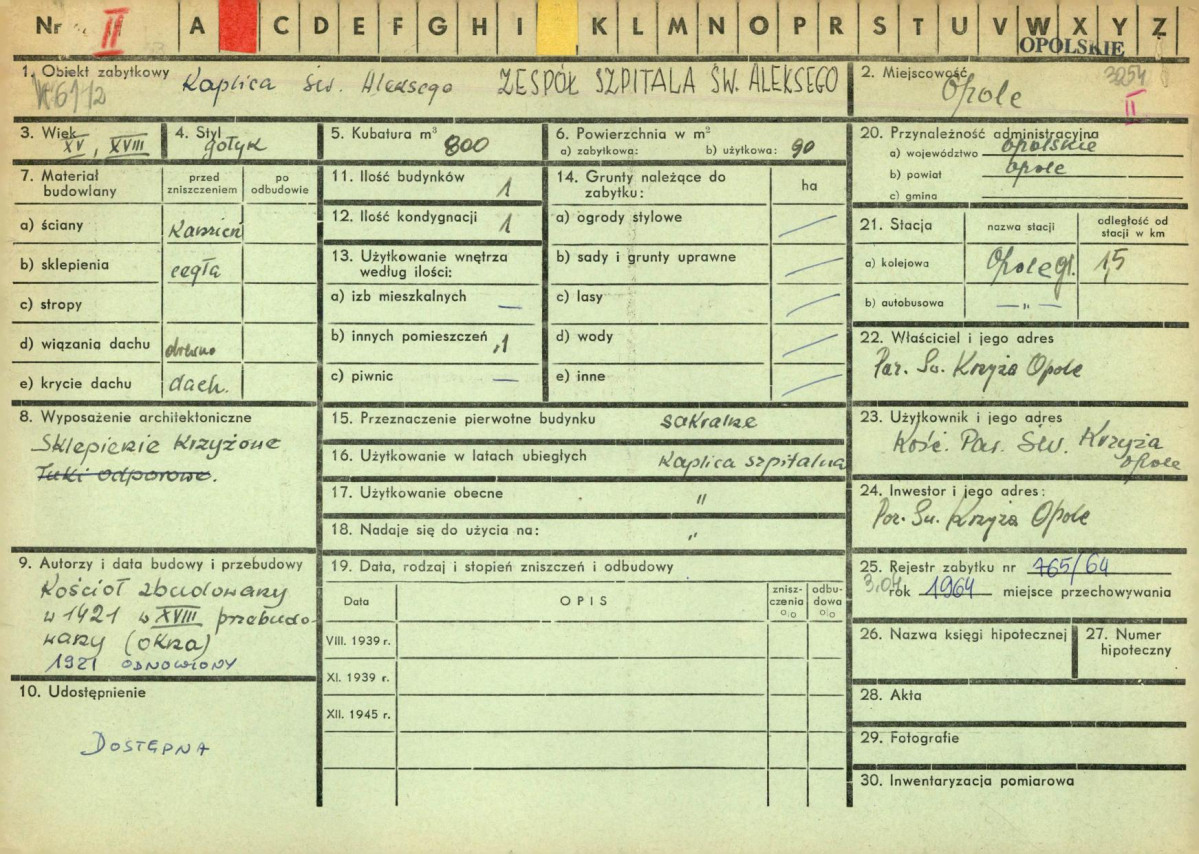 Nr II A C D E F G H I K L M N O P R S T U V W X Y Z
OPOLSKIE
1. Obiekt zabytkowy Kaplica św. Aleksego ZESPÓŁ SZPITALA ŚW. ALEKSEGO
2. Miejscowość
Opole
II
3. Wiek
XV, XVIII
4. Styl
gotyk
5. Kubatura m³
800
6. Powierzchnia w m²
a) zabytkowa: b) użytkowa: 90
7. Materiał budowlany
przed zniszczeniem
po odbudowie
a) ściany kamień
b) sklepienia cegła
c) stropy
d) wiązania dachu drewno
e) krycie dachu dach.
8. Wyposażenie architektoniczne
Sklepienie krzyżowe
Łuki odporowe.
9. Autorzy i data budowy i przebudowy
Kościół zbudowany
w 1421 w XVIII przebudo-
wany (okna)
1921 ODNOWIONY
10. Udostępnienie
DOSTĘPNA
11. Ilość budynków 1
12. Ilość kondygnacji 1
13. Użytkowanie wnętrza
według ilości:
a) izb mieszkalnych —
b) innych pomieszczeń 1
c) piwnic —
14. Grunty należące do
zabytku:
ha
a) ogrody stylowe
b) sady i grunty uprawne
c) lasy
d) wody
e) inne
15. Przeznaczenie pierwotne budynku sakralne
16. Użytkowanie w latach ubiegłych Kaplica szpitalna
17. Użytkowanie obecne "
18. Nadaje się do użycia na: "
19. Data, rodzaj i stopień zniszczeń i odbudowy
Data
OPIS
znisz-
czenia
o/o
odbu-
dowa
o/o
VIII. 1939 r.
XI. 1939 r.
XII. 1945 r.
20. Przynależność administracyjna
a) województwo opolskie
b) powiat opole
c) gmina
21. Stacja
nazwa stacji
odległość od
stacji w km
a) kolejowa Opole gł. 1,5
b) autobusowa — " —
22. Właściciel i jego adres
Par. Św. Krzyża Opole
23. Użytkownik i jego adres
Kośc. Par. Św. Krzyża
opole
24. Inwestor i jego adres:
Par. Św. Krzyża Opole
25. Rejestr zabytku nr 765/64
3.04 rok 1964 miejsce przechowywania
26. Nazwa księgi hipotecznej
27. Numer
hipoteczny
28. Akta
29. Fotografie
30. Inwentaryzacja pomiarowa